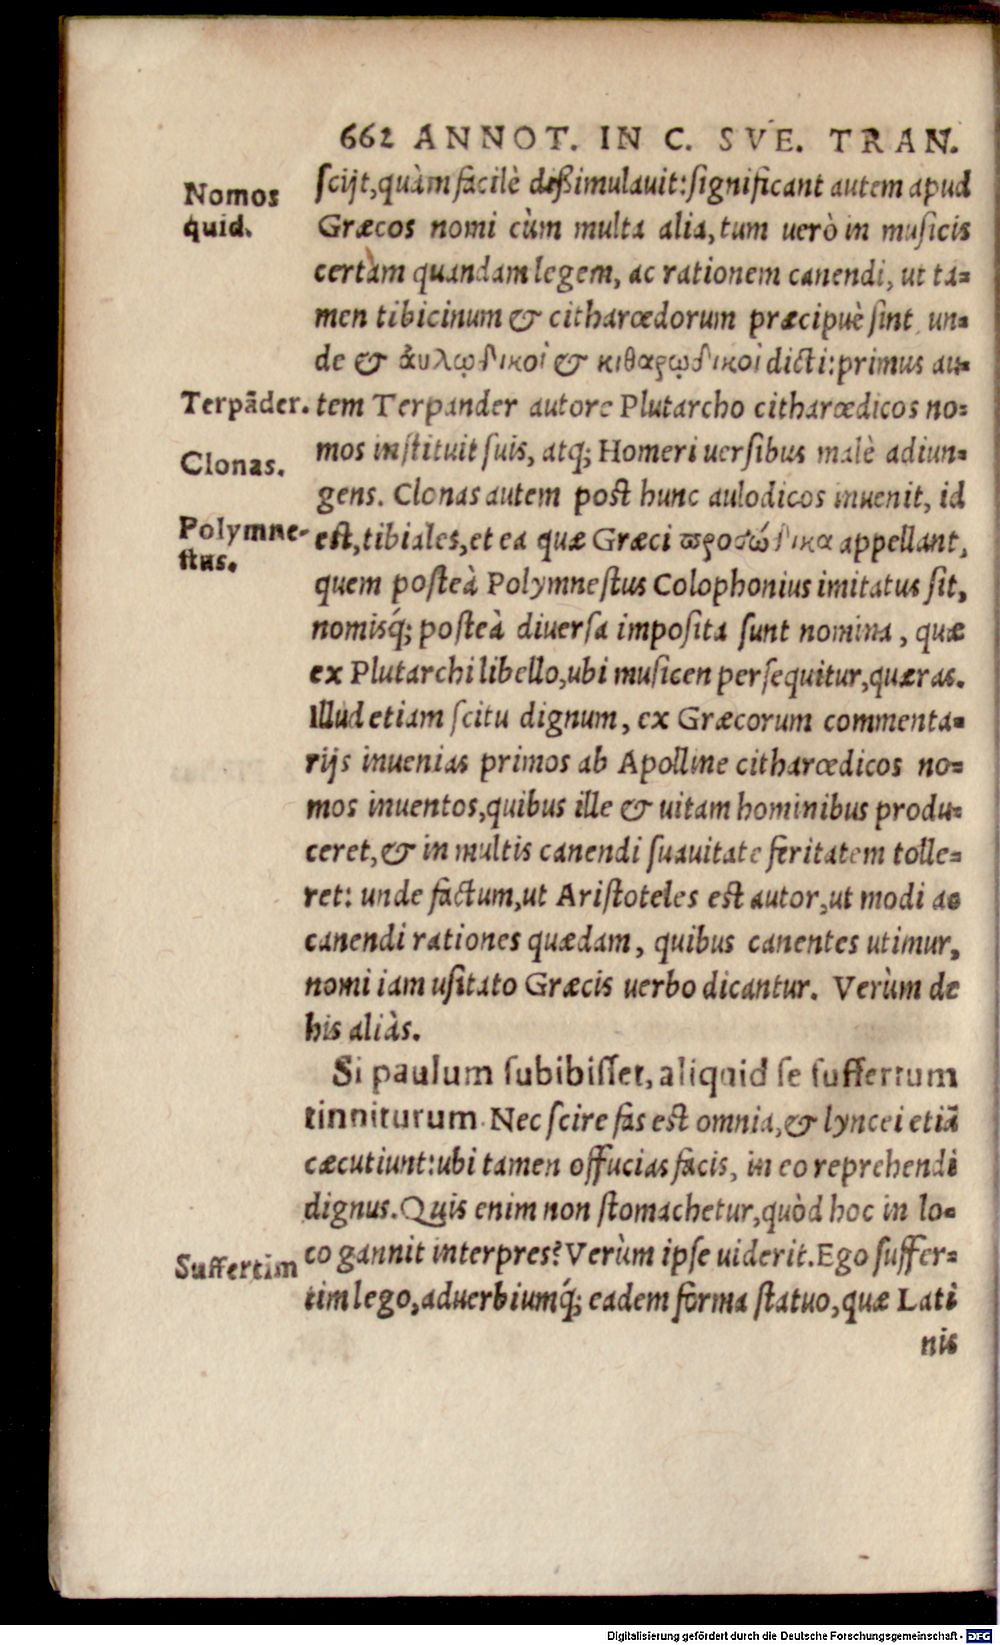 662 ANNOT. IN C. SVE. TRAN.
Nomos
quid.
scijt,quàm facilè dißimulauit:significant autem apud
Græcos nomi cùm multa alia,tum uerò in musicis
certam quandam legem, ac rationem canendi, ut ta=
men tibicinum & citharœdorum præcipuè sint, un=
de & ἀυλῳδικοὶ & κιθαρῳδικοὶ dicti:primus au=
Terpāder.
tem Terpander autore Plutarcho citharœdicos no=
mos instituit suis, atq; Homeri uersibus malè adiun=
Clonas.
gens. Clonas autem post hunc aulodicos inuenit, id
Polymne-
stus.
est,tibiales,et ea quæ Græci προσώδικα appellant,
quem posteà Polymnestus Colophonius imitatus sit,
nomisq́; posteà diuersa imposita sunt nomina, quæ
ex Plutarchi libello,ubi musicen persequitur,quæras.
Illud etiam scitu dignum, ex Græcorum commenta=
rijs inuenias primos ab Apolline citharœdicos no=
mos inuentos,quibus ille & uitam hominibus produ=
ceret,& in multis canendi suauitate feritatem tolle=
ret: unde factum,ut Aristoteles est autor,ut modi ac
canendi rationes quædam, quibus canentes utimur,
nomi iam usitato Græcis uerbo dicantur. Verùm de
his aliàs.
Si paulum subibisset, aliquid se suffertum
tinniturum. Nec scire fas est omnia,& lyncei etiā
cæcutiunt:ubi tamen offucias facis, in eo reprehendi
dignus. Quis enim non stomachetur,quòd hoc in lo=
co gannit interpres? Verùm ipse uiderit. Ego suffer=
Suffertim
tim lego,aduerbiumq́; eadem forma statuo,quæ Lati
nis
Digitalisierung gefördert durch die Deutsche Forschungsgemeinschaft - DFG